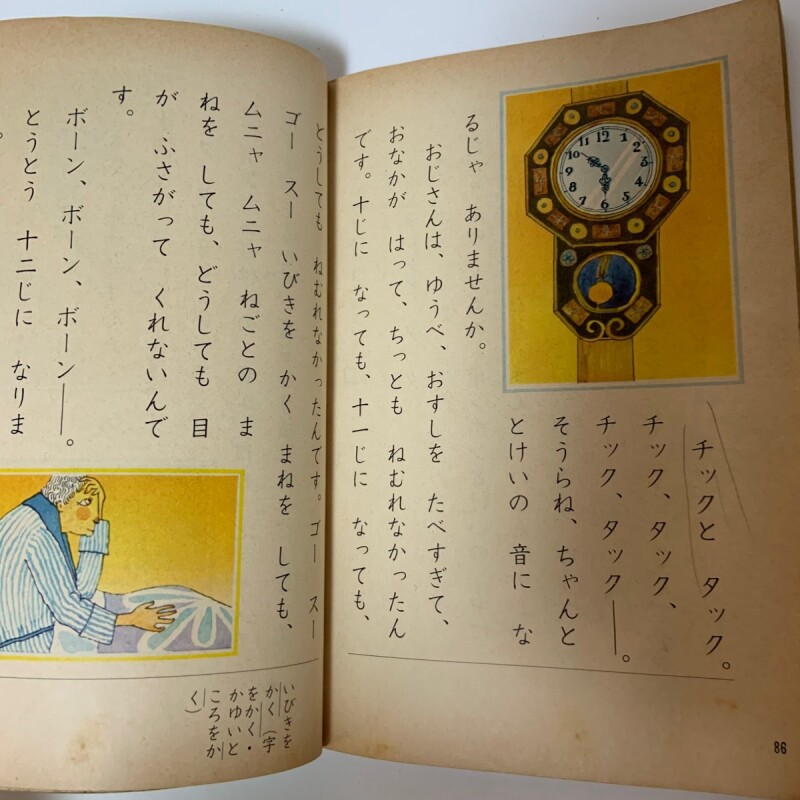 チックと タック。
チック、タック、
チック、タック――。
そうらね、ちゃんと
とけいの 音に な
るじゃ ありませんか。
おじさんは、ゆうべ、おすしを たべすぎて、
おなかが はって、ちっとも ねむれなかったん
です。十じに なっても、十一じに なっても、
12
1
2
3
4
5
6
7
8
9
10
11
86
どうしても ねむれなかったんです。ゴー スー
ゴー スー いびきを かく まねを しても、
ムニャ ムニャ ねごとの ま
ねを しても、どうしても 目
が ふさがって くれないんで
す。
ボーン、ボーン、ボーン――。
とうとう 十二じに なりま
いびきを
かく(字
をかく・
かゆいと
ころをか
く)